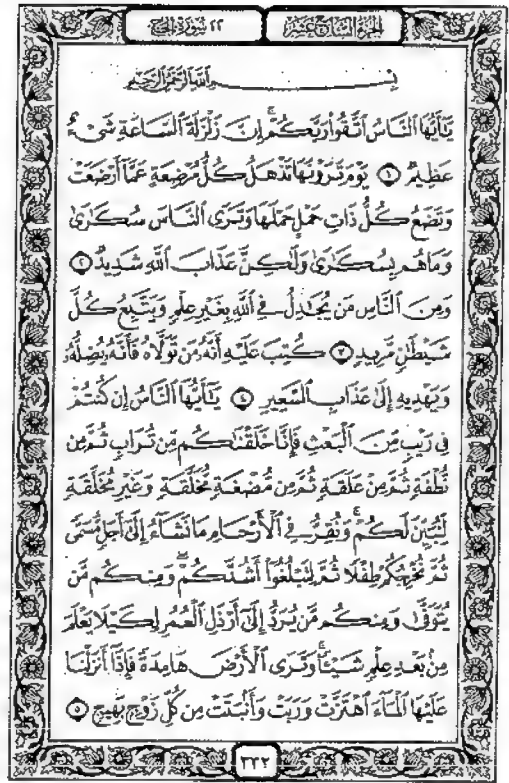 الجزء السابع عشر
٢٢ سورة الحج
بسم الله الرحمن الرحيم
يَٰٓأَيُّهَا ٱلنَّاسُ ٱتَّقُوا۟ رَبَّكُمْ ۚ إِنَّ زَلْزَلَةَ ٱلسَّاعَةِ شَىْءٌ
عَظِيمٌ ١ يَوْمَ تَرَوْنَهَا تَذْهَلُ كُلُّ مُرْضِعَةٍ عَمَّآ أَرْضَعَتْ
وَتَضَعُ كُلُّ ذَاتِ حَمْلٍ حَمْلَهَا وَتَرَى ٱلنَّاسَ سُكَٰرَىٰ
وَمَا هُم بِسُكَٰرَىٰ وَلَٰكِنَّ عَذَابَ ٱللَّهِ شَدِيدٌ ٢
وَمِنَ ٱلنَّاسِ مَن يُجَٰدِلُ فِى ٱللَّهِ بِغَيْرِ عِلْمٍ وَيَتَّبِعُ كُلَّ
شَيْطَٰنٍ مَّرِيدٍ ٣ كُتِبَ عَلَيْهِ أَنَّهُۥ مَن تَوَلَّاهُ فَأَنَّهُۥ يُضِلُّهُۥ
وَيَهْدِيهِ إِلَىٰ عَذَابِ ٱلسَّعِيرِ ٤ يَٰٓأَيُّهَا ٱلنَّاسُ إِن كُنتُمْ
فِى رَيْبٍ مِّنَ ٱلْبَعْثِ فَإِنَّا خَلَقْنَٰكُم مِّن تُرَابٍ ثُمَّ مِن
نُّطْفَةٍ ثُمَّ مِنْ عَلَقَةٍ ثُمَّ مِن مُّضْغَةٍ مُّخَلَّقَةٍ وَغَيْرِ مُخَلَّقَةٍ
لِّنُبَيِّنَ لَكُمْ ۚ وَنُقِرُّ فِى ٱلْأَرْحَامِ مَا نَشَآءُ إِلَىٰٓ أَجَلٍ مُّسَمًّى
ثُمَّ نُخْرِجُكُمْ طِفْلًا ثُمَّ لِتَبْلُغُوٓا۟ أَشُدَّكُمْ ۖ وَمِنكُم مَّن
يُتَوَفَّىٰ وَمِنكُم مَّن يُرَدُّ إِلَىٰٓ أَرْذَلِ ٱلْعُمُرِ لِكَيْلَا يَعْلَمَ
مِنۢ بَعْدِ عِلْمٍ شَيْـًٔا ۚ وَتَرَى ٱلْأَرْضَ هَامِدَةً فَإِذَآ أَنزَلْنَا
عَلَيْهَا ٱلْمَآءَ ٱهْتَزَّتْ وَرَبَتْ وَأَنۢبَتَتْ مِن كُلِّ زَوْجٍۭ بَهِيجٍ ٥
٣٣٢